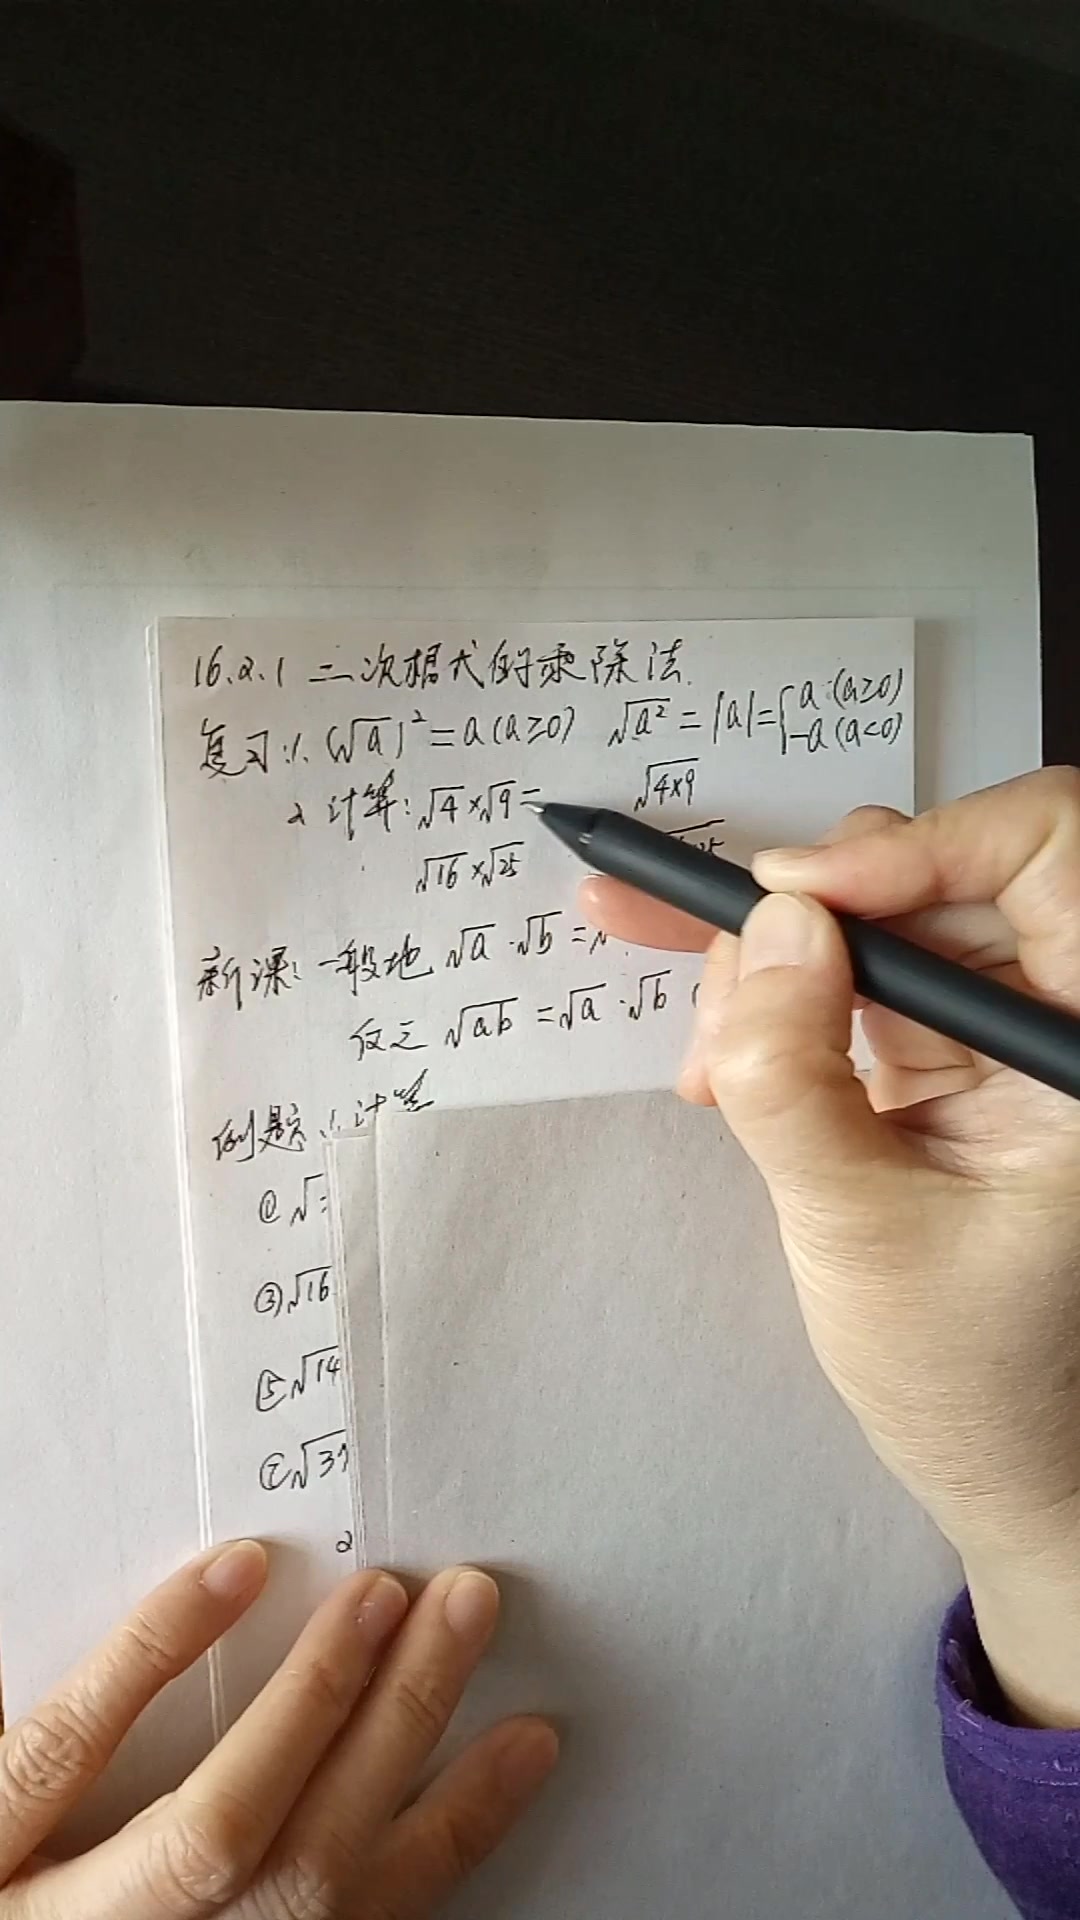 16.2.1 二次根式的乘除法.
复习: 1. (√a)² = a (a≥0) √a² = |a| = { a (a≥0) -a (a<0)
2 计算: √4 × √9 = √4×9
√16 × √25
新课: 一般地 √a · √b =
反之 √ab = √a · √b (
例题: 1. 计算
① √
③ √16
⑤ √14
⑦ √3
2